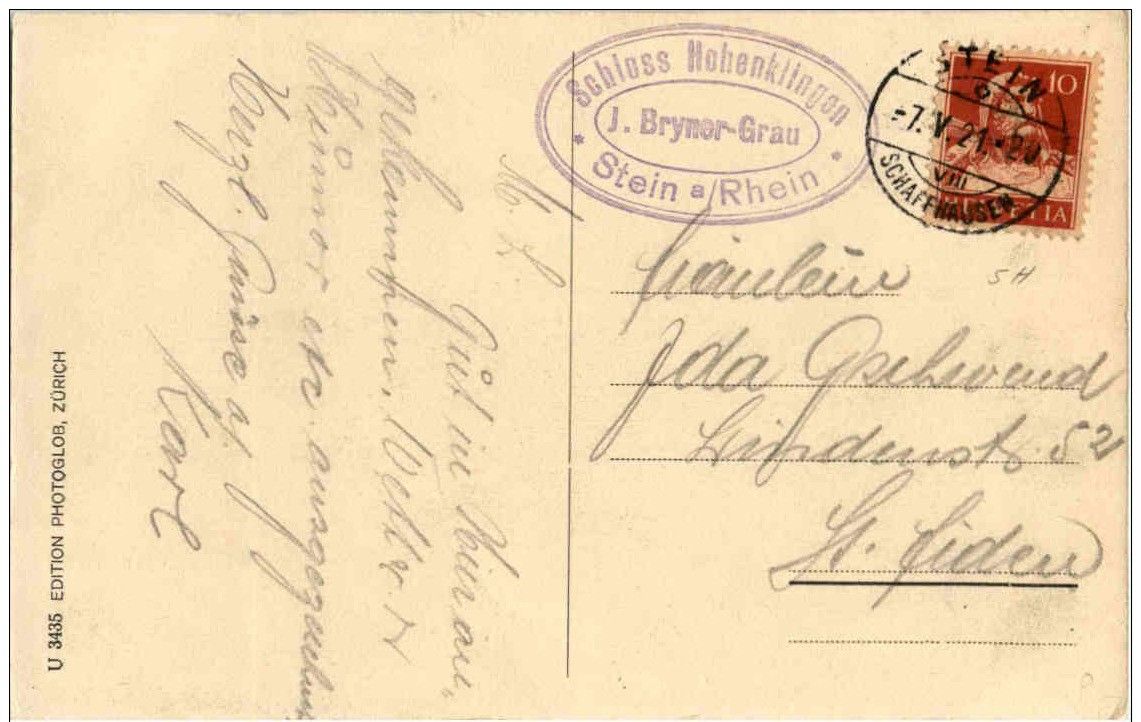 Schloss Hohenklingen
J. Bryner-Grau
* Stein a/Rhein *
STEIN
10
-7.V.21.-20
VIII
SCHAFFHAUSEN
HELVETIA
SH
Fräulein
Ida Gschwend
Lindenstr. 52
St. Fiden
M. L.
Gut in
Wetter
Humor etc.
Herzl. Grüsse
Karl
U 3435 EDITION PHOTOGLOB, ZÜRICH